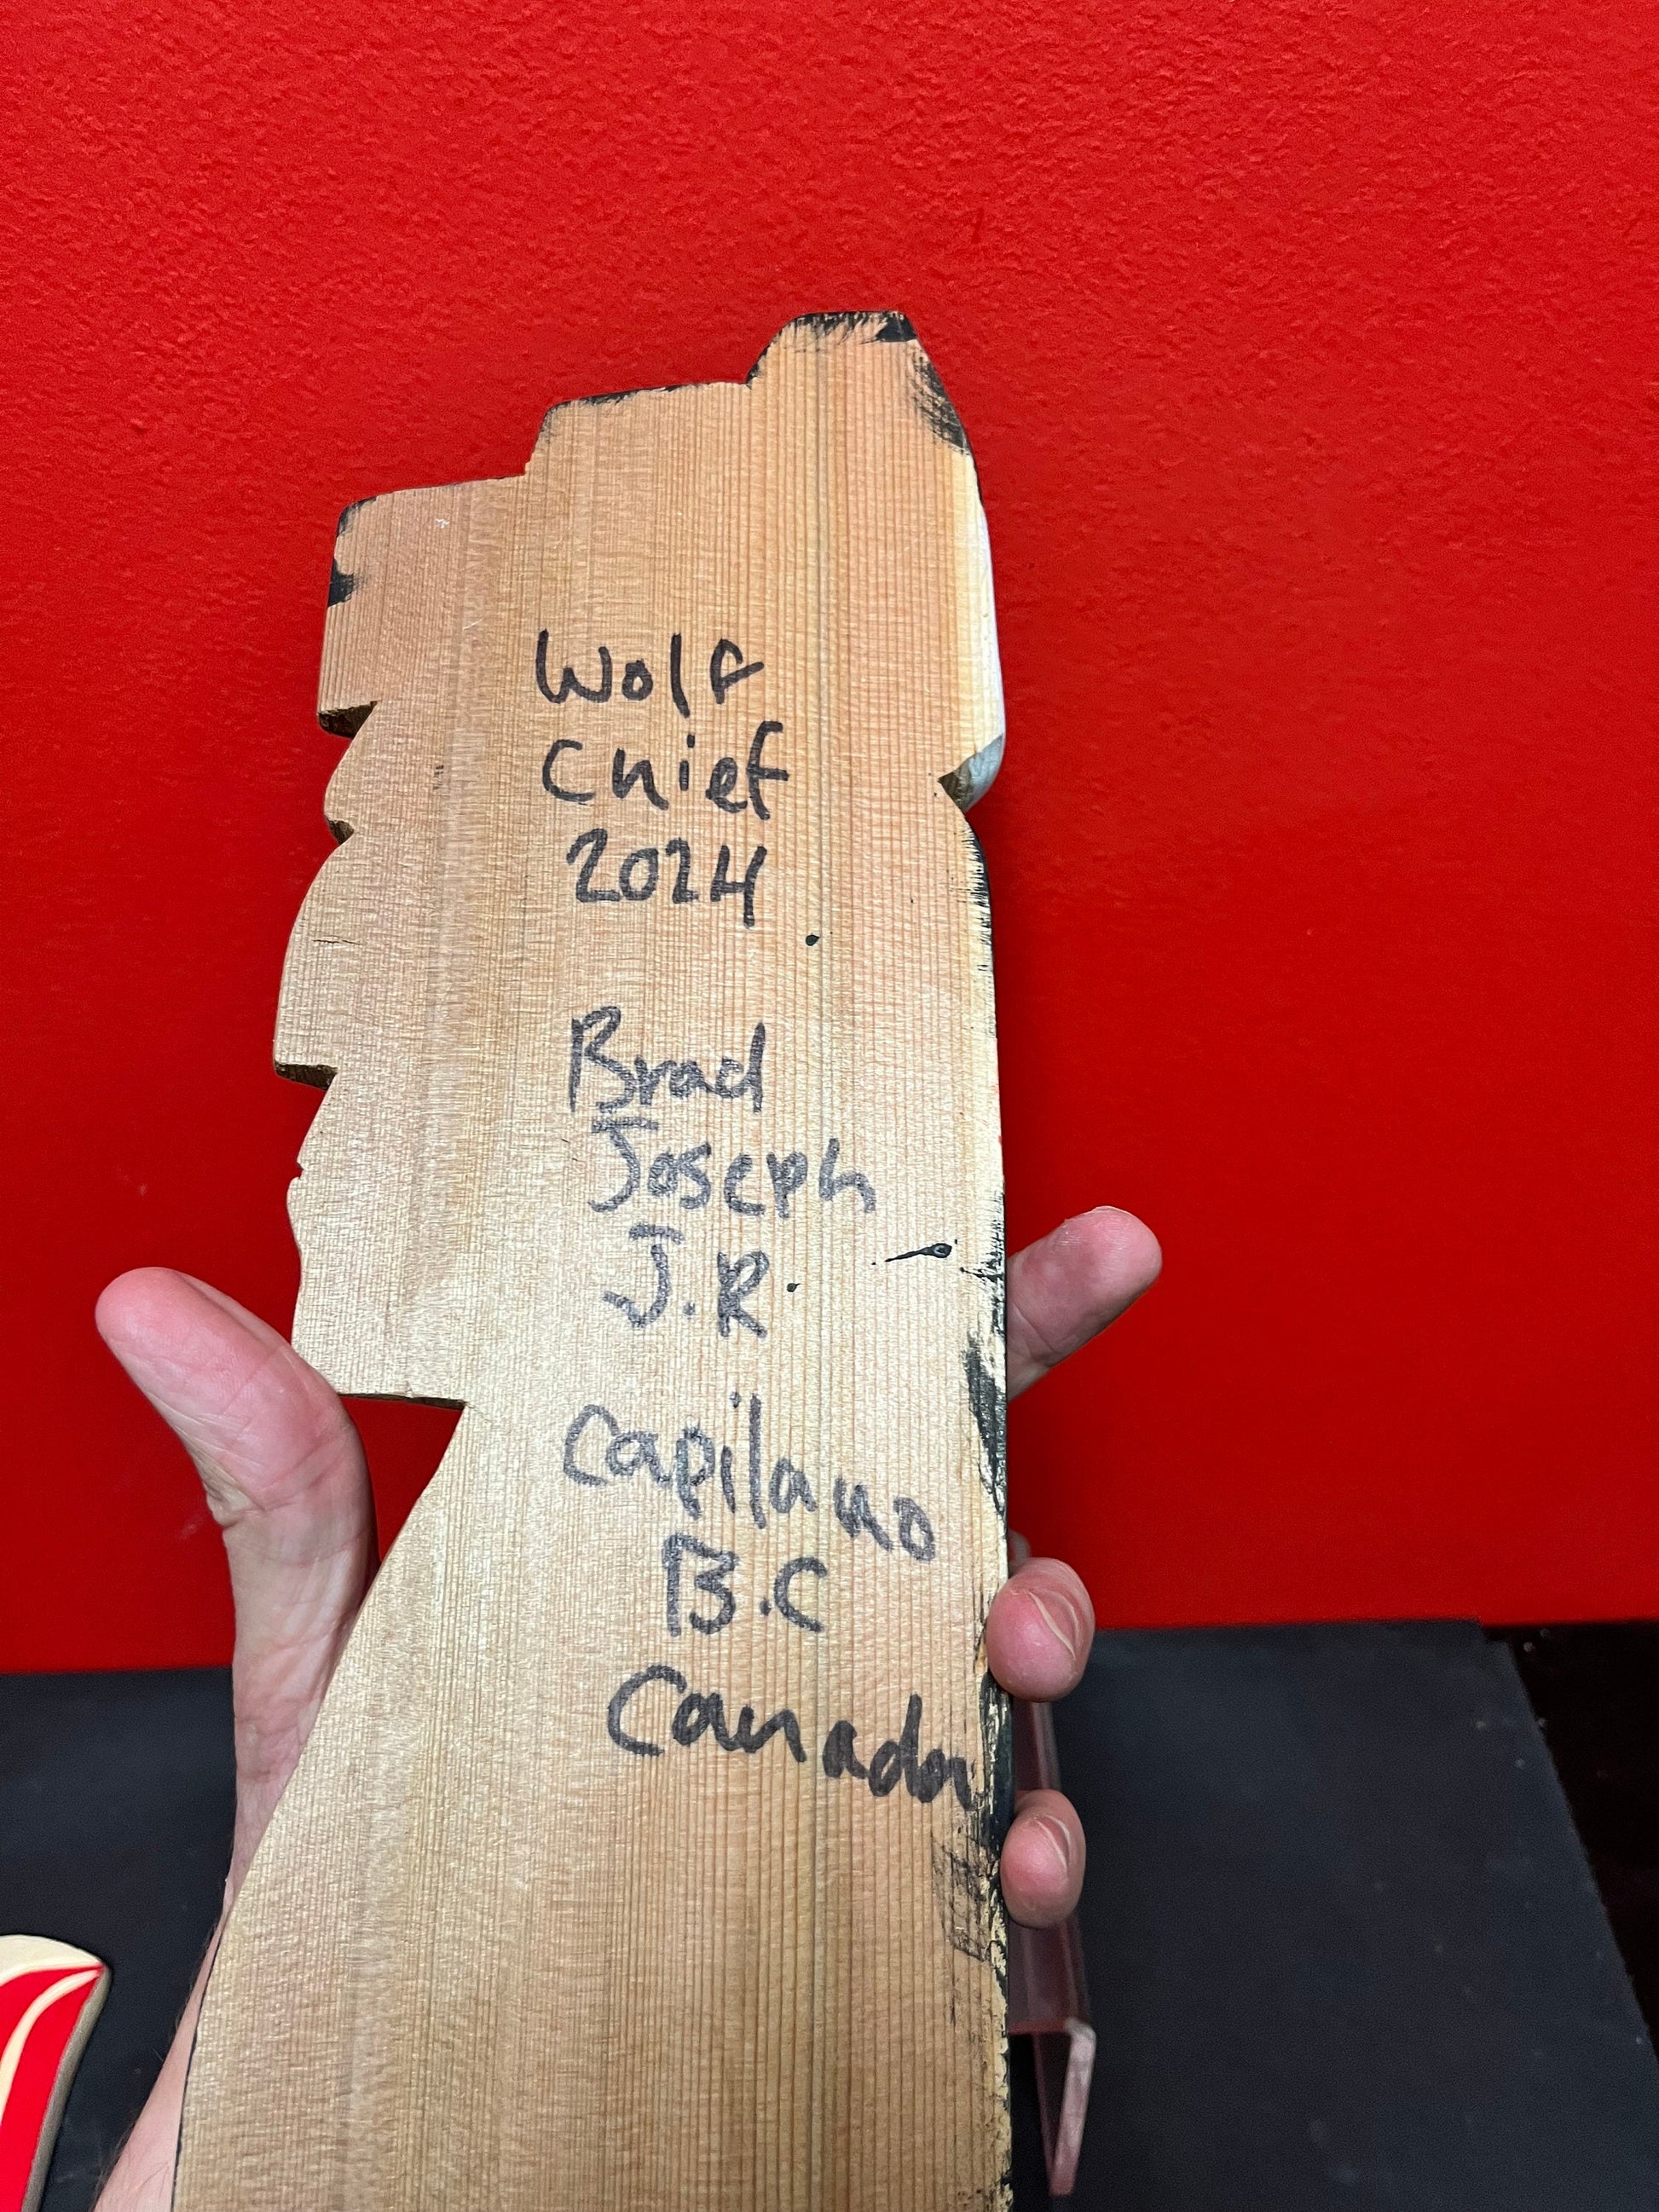 Wolf
Chief
2024
Brad
Joseph
J.R.
Capilano
B.C
Canada